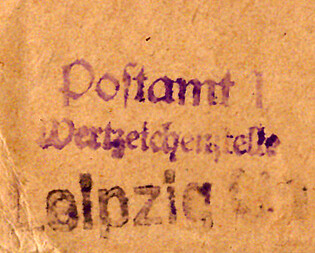 Postamt 1
Wertzeichenstelle
Leipzig